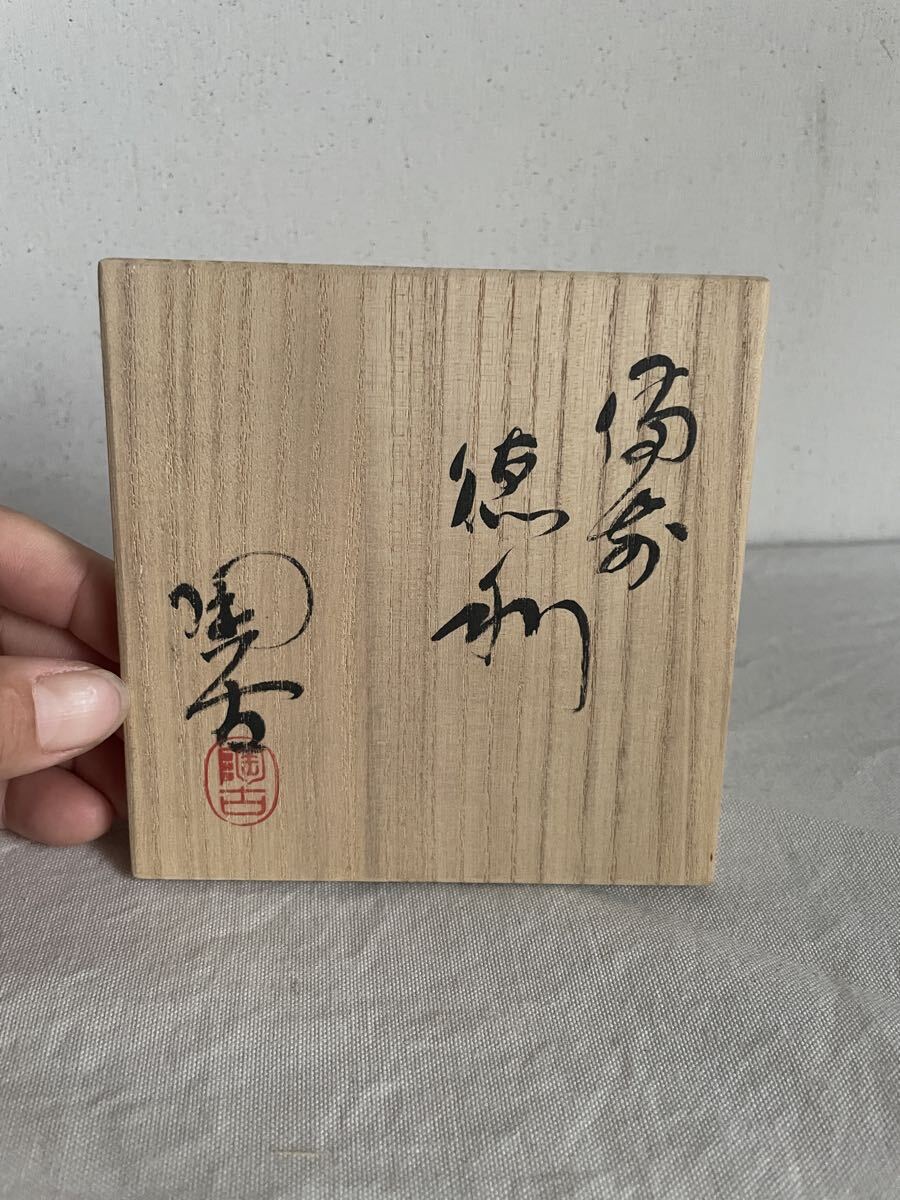 備前
徳利
陶古
陶古